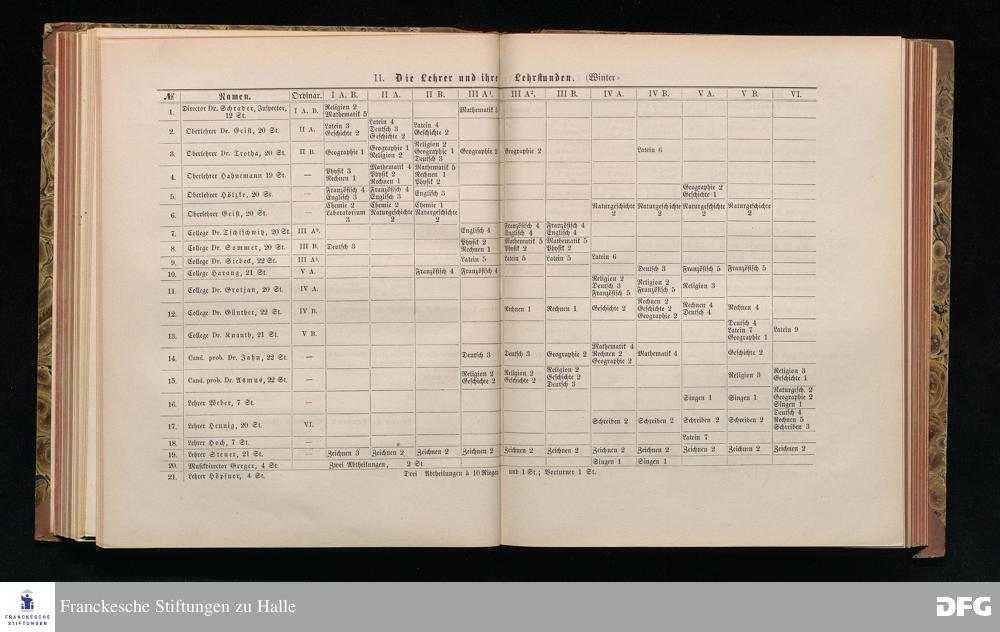 II. Die Lehrer und ihre Lehrstunden. (Winter=
№ Namen. Ordinar. I A. B. II A. II B. III A¹. III A². III B. IV A. IV B. V A. V B. VI.
1. Director Dr. Schrader, Inspector, 12 St. I A. B. Religion 2 Mathematik 5 Mathematik 5
2. Oberlehrer Dr. Geist, 20 St. II A. Latein 3 Geschichte 2 Latein 4 Deutsch 3 Geschichte 2 Latein 4 Geschichte 2
3. Oberlehrer Dr. Trotha, 20 St. II B. Geographie 1 Geographie 1 Religion 2 Religion 2 Geographie 1 Deutsch 3 Geographie 2 Geographie 2 Latein 6
4. Oberlehrer Hahnemann 19 St. — Physik 3 Rechnen 1 Mathematik 4 Physik 2 Rechnen 1 Mathematik 5 Rechnen 1 Physik 2
5. Oberlehrer Hölzke, 20 St. — Französisch 4 Englisch 3 Französisch 4 Englisch 3 Englisch 3 Geographie 2 Geschichte 1
6. Oberlehrer Geist, 20 St. — Chemie 2 Laboratorium 3 Chemie 2 Naturgeschichte 2 Chemie 1 Naturgeschichte 2 Naturgeschichte 2 Naturgeschichte 2 Naturgeschichte 2 Naturgeschichte 2
7. College Dr. Tschischwitz, 20 St. III A². Englisch 4 Französisch 4 Englisch 4 Französisch 4 Englisch 4
8. College Dr. Sommer, 20 St. III B. Deutsch 3 Physik 2 Rechnen 1 Mathematik 5 Physik 2 Mathematik 5 Physik 2
9. College Dr. Siebeck, 22 St. III A¹. Latein 5 Latein 5 Latein 5 Latein 6
10. College Harang, 21 St. V A. Französisch 4 Französisch 4 Deutsch 3 Französisch 5 Französisch 5
11. College Dr. Grotjan, 20 St. IV A. Religion 2 Deutsch 3 Französisch 5 Religion 2 Französisch 5 Religion 3
12. College Dr. Günther, 22 St. IV B. Rechnen 1 Rechnen 1 Geschichte 2 Rechnen 2 Geschichte 2 Geographie 2 Rechnen 4 Deutsch 4 Rechnen 4
13. College Dr. Knauth, 21 St. V B. Deutsch 4 Latein 7 Geographie 1 Latein 9
14. Cand. prob. Dr. Jahn, 22 St. — Deutsch 3 Deutsch 3 Geographie 2 Mathematik 4 Rechnen 2 Geographie 2 Mathematik 4 Geschichte 2
15. Cand. prob. Dr. Asmus, 22 St. — Religion 2 Geschichte 2 Religion 2 Geschichte 2 Religion 2 Geschichte 2 Deutsch 3 Religion 3 Religion 3 Geschichte 1
16. Lehrer Weber, 7 St. — Singen 1 Singen 1 Naturgesch. 2 Geographie 2 Singen 1
17. Lehrer Hennig, 20 St. VI. Schreiben 2 Schreiben 2 Schreiben 2 Schreiben 2 Deutsch 4 Rechnen 5 Schreiben 3
18. Lehrer Hoch, 7 St. — Latein 7
19. Lehrer Steuer, 21 St. — Zeichnen 3 Zeichnen 2 Zeichnen 2 Zeichnen 2 Zeichnen 2 Zeichnen 2 Zeichnen 2 Zeichnen 2 Zeichnen 2 Zeichnen 2 Zeichnen 2
20. Musikdirector Greger, 4 St Zwei Abtheilungen, 2 St Singen 1 Singen 1
21. Lehrer Höpfner, 4 St. Drei Abtheilungen à 10 Riegen und 1 St.; Vorturner 1 St.
FRANCKESCHE STIFTUNGEN
Franckesche Stiftungen zu Halle
DFG